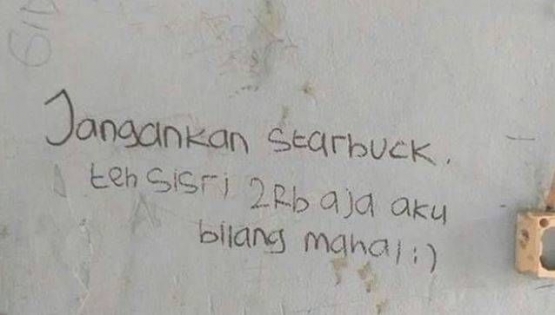 Jangankan starbuck.
teh sisri 2Rb aja aku
bilang mahal :)